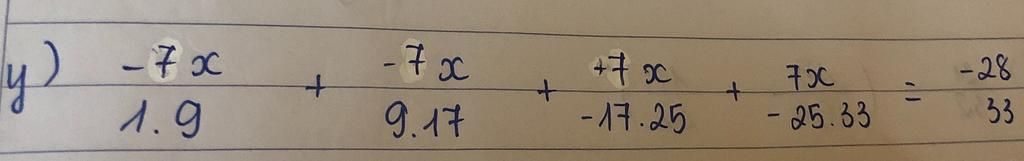 y) \frac{-7x}{1.9} + \frac{-7x}{9.17} + \frac{+7x}{-17.25} + \frac{7x}{-25.33} = \frac{-28}{33}